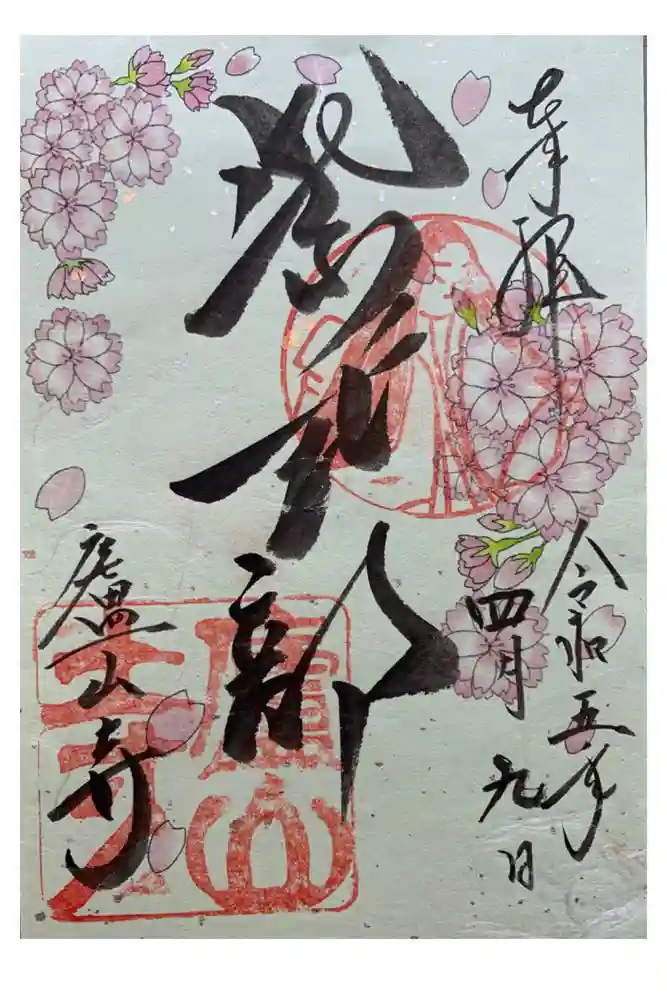 奉拝
令和五年
四月九日
紫式部
廬山寺
廬山寺